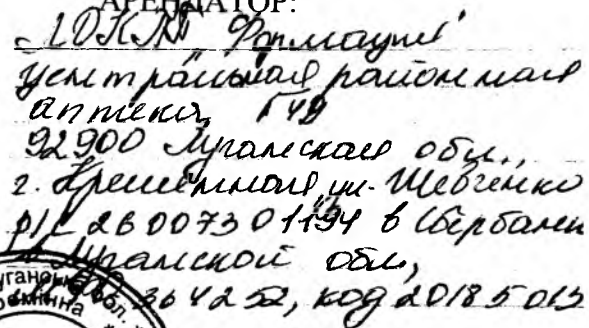 АРЕНДАТОР:
"ЛОКП Фармация"
центральная районная
аптека, №49
92900 Луганская обл.,
г. Кременная ул. Шевченко
р/с 26007301194 в Сбербанке
Луганской обл,
364252, код 2018501